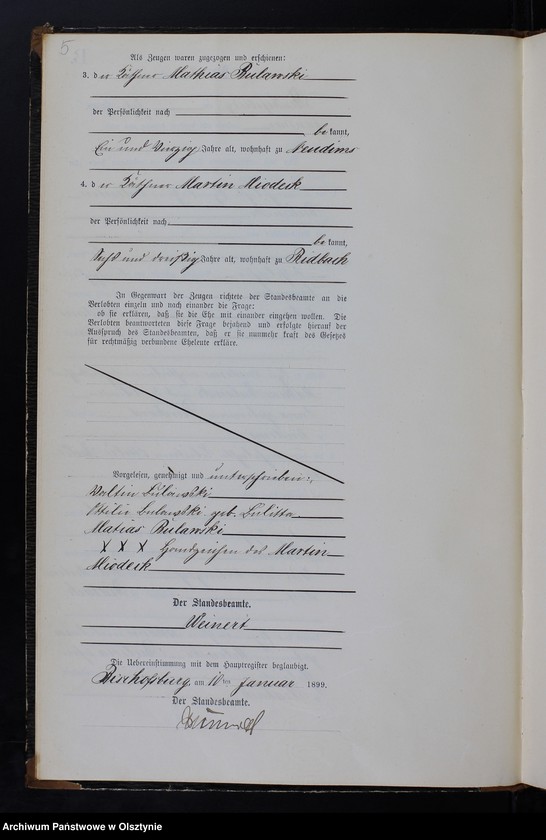 5
Als Zeugen waren zugezogen und erschienen:
3. der Käthner Mathias Bulawski
der Persönlichkeit nach
bekannt,
Ein und Vierzig Jahre alt, wohnhaft zu Neudims
4. der Käthner Martin Miodeck
der Persönlichkeit nach
bekannt,
und dreißig Jahre alt, wohnhaft zu Ridbach
In Gegenwart der Zeugen richtete der Standesbeamte an die
Verlobten einzeln und nach einander die Frage:
ob sie erklären, daß sie die Ehe mit einander eingehen wollen. Die
Verlobten beantworteten diese Frage bejahend und erfolgte hierauf der
Ausspruch des Standesbeamten, daß er sie nunmehr kraft des Gesetzes
für rechtmäßig verbundene Eheleute erkläre.
Vorgelesen, genehmigt und unterschrieben:
Valtin Bulawski
Ottilie Bulawski geb.
Matias Bulawski
X X X Handzeichen des Martin
Miodeck
Der Standesbeamte.
Weinert
Die Uebereinstimmung mit dem Hauptregister beglaubigt.
Bischofsburg am 10ten Januar 1899.
Der Standesbeamte.
Archiwum Państwowe w Olsztynie